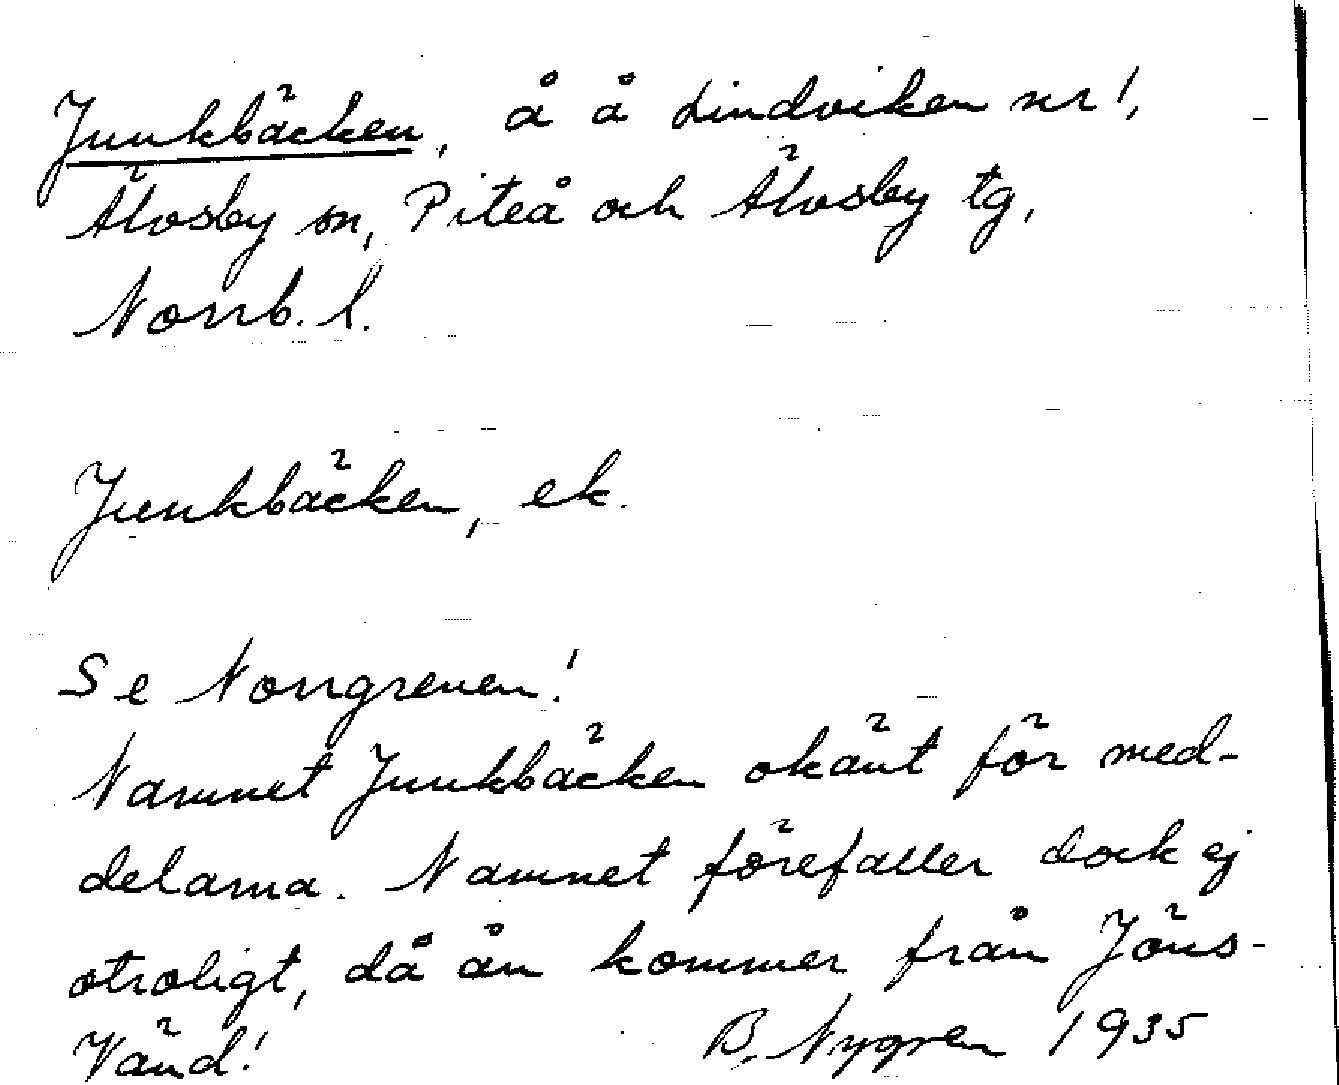 Junkbäcken, å å Lindviken nr 1,
Älvsby sn, Piteå och Älvsby tg,
Norrb. l.
Junkbäcken, ek.
Se Norrgrenen!
Namnet Junkbäcken okänt för med-
delarna. Namnet förefaller dock ej
otroligt, då ån kommer från Jöns-
Vänd! B. Nygren 1935